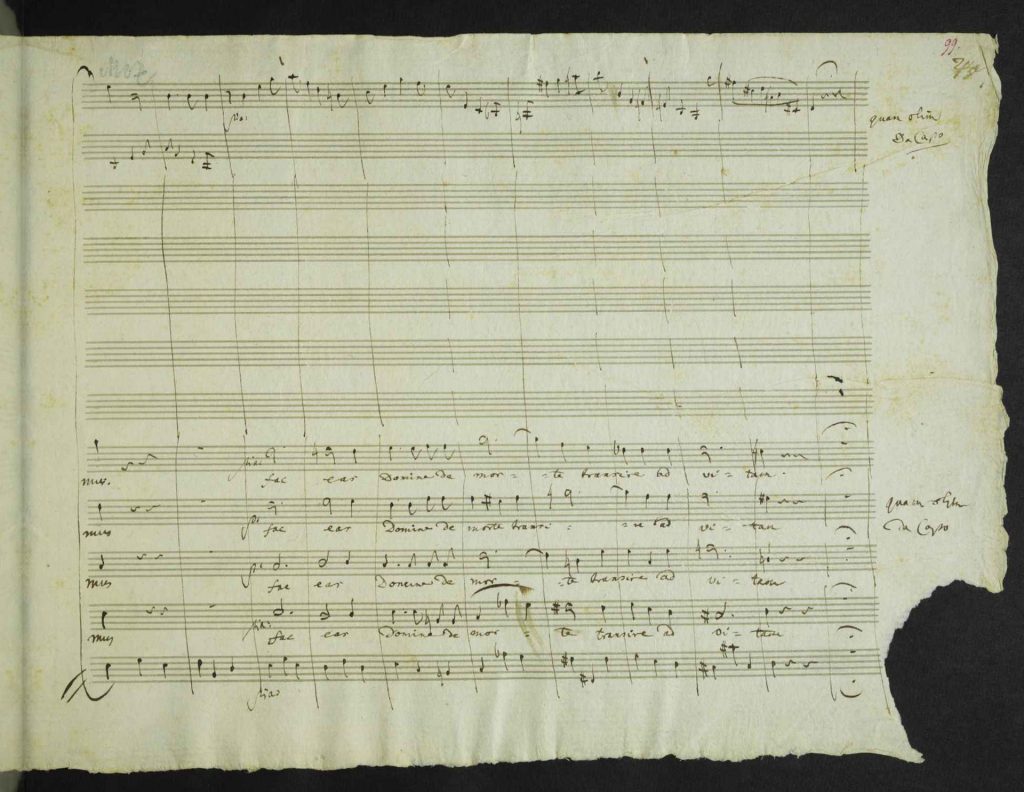 99.
pia:
quam olim
Da Capo
mus. pia: fac eas Domine de mor = te transire ad vi = tam.
mus pia: fac eas Domine de morte transi = re ad vi = tam
quam olim
Da Capo
mus pia: fac eas Domine de mor = te transire ad vi = tam
mus pia: fac eas Domine de mor = te transire ad vi = tam
pia: